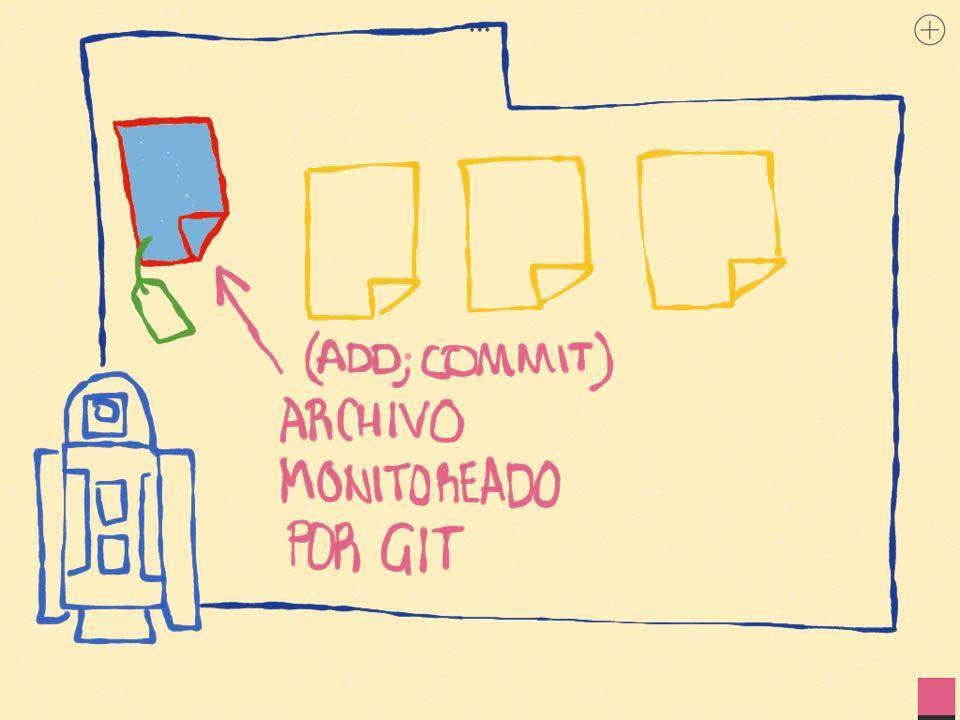 (ADD; COMMIT)
ARCHIVO
MONITOREADO
POR GIT